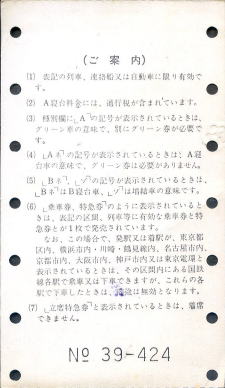 (ご案内)
(1) 表記の列車、連絡船又は自動車に限り有効で
す。
(2) A寝台料金には、通行税が含まれています。
(3) 種別欄に、「A」の記号が表示されているときは、
グリーン車の意味で、別にグリーン券が必要で
す。
(4) 「Aネ」の記号が表示されているときは、A寝
台車の意味で、グリーン券は必要ありません。
(5) 「Bネ」は B寝台車、
の意味です。
(6) 「乗車券、特急券」のように表示されていると
きは、表記の区間、列車等に有効な乗車券と特
急券とが1枚で発売されています。
なお、この場合で、発駅又は着駅が、東京都
区内、横浜市内・川崎・鶴見線内、名古屋市内、
京都市内、大阪市内、神戸市内又は東京電環と
表示されているときは、その区間内にある国鉄
線各駅で乗車又は下車できますが、これらの各
駅で下車したときは、
は無効となります。
(7) 「立席特急券」と表示されているときは、着席
できません。
№ 39-424